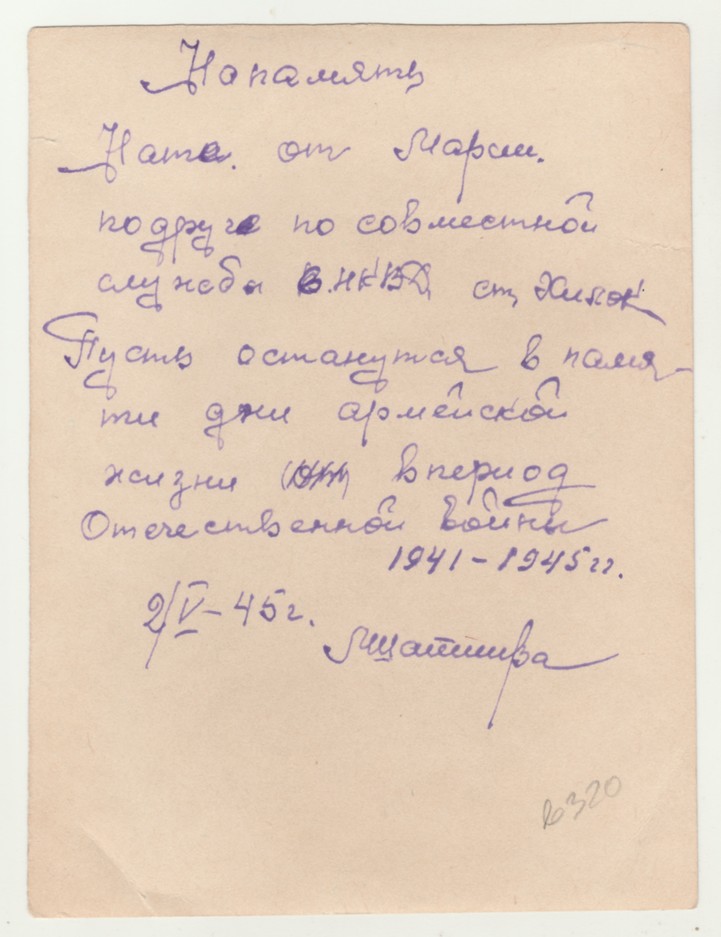 На память
Ната. от Марии.
подруге по совместной
службы в. НКВД ст. Хилок
Пусть останутся в памя-
ти дни армейской
жизни в период
Отечественной войны
1941-1945 гг.
2/V-45г.
6320